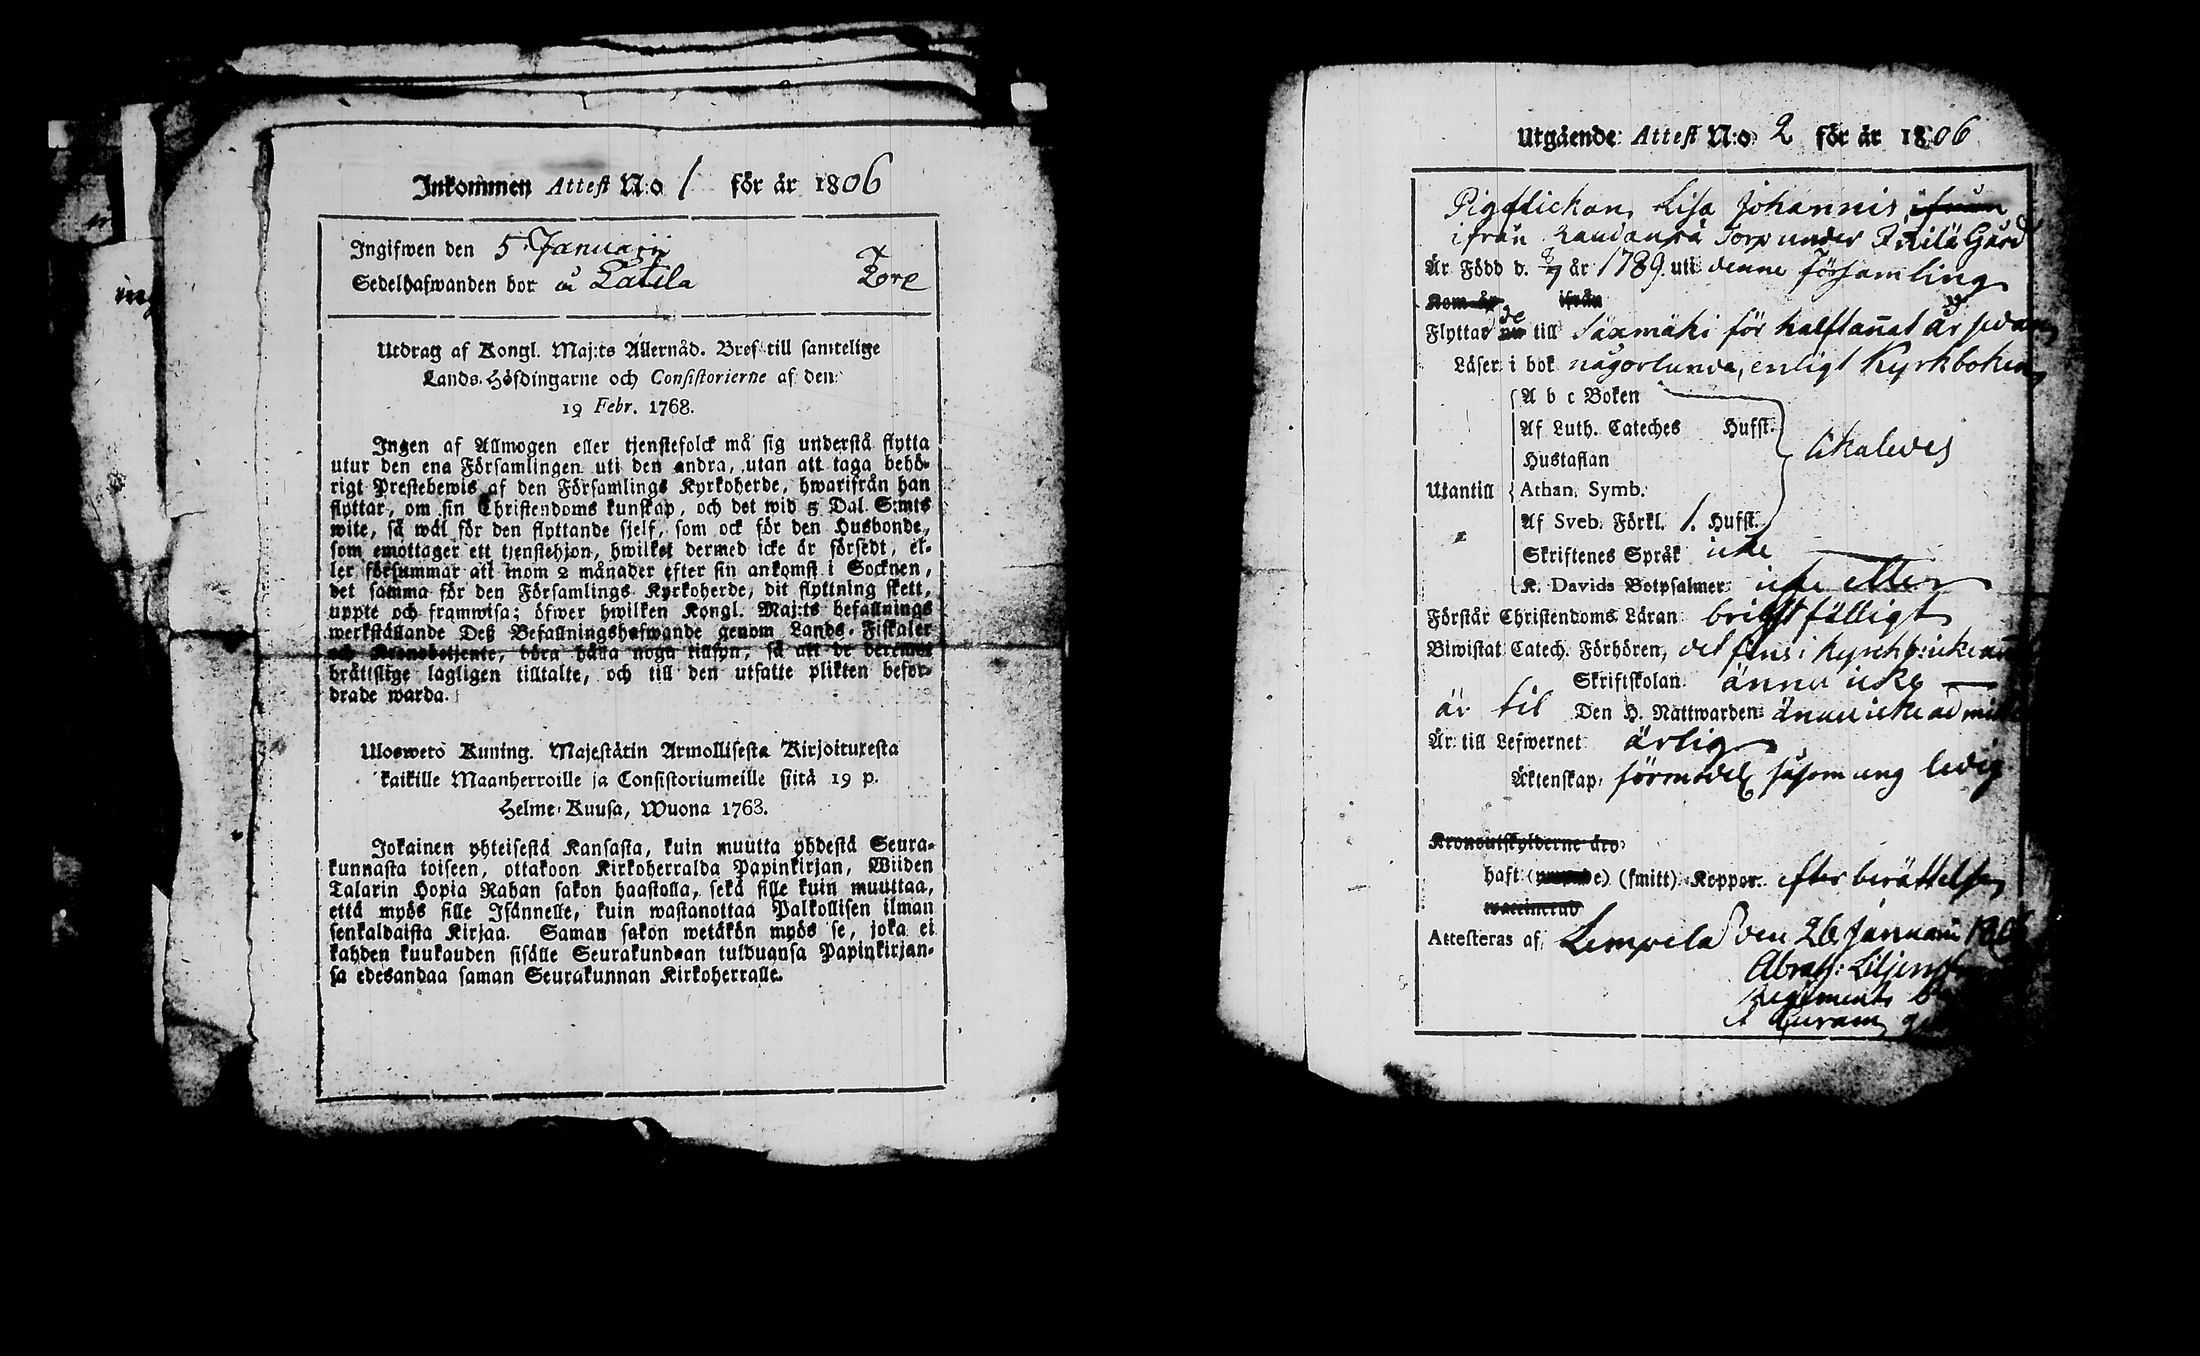 Inkommen Attest N:o 1 för år 1806
Ingifwen den 5 Januarij
Sedelhafwanden bor
Utdrag af Kongl. Maj:ts Allernåd. Bref till samtelige
Lands-Höfdingarne och Consistorierne af den
19 Febr. 1768.
Ingen af Allmogen eller tjenstefolck må sig understå flytta
utur den ena Församlingen uti den andra, utan att taga behö-
rigt Prestebewis af den Församlings Kyrkoherde, hwarifrån han
flyttar, om sin Christendoms kunskap, och det wid 5 Dal. S:mts
wite, så wäl för den flyttande sjelf, som ock för den Husbonde,
som emottager ett tjenstehjon, hwilket dermed icke är försedt, el-
ler försummar att inom 2 månader efter sin ankomst i Socknen,
det samma för den Församlings Kyrkoherde, dit flyttning skett,
uppte och framwisa; öfwer hwilken Kongl. Maj:ts befallnings
werkställande Deß Befallningshafwande genom Lands-Fiskaler
och Kronobetjente, böra hålla noga tillsyn, så att de deremot
bråttslige lagligen tilltalte, och till den utsatte plikten befor-
drade warda.
Ulosweto Kuning. Majestätin Armollisesta Kirjoituxesta
kaikille Maanherroille ja Consistoriumeille siitä 19 p.
Helme-Kuusa, Wuona 1768.
Jokainen yhteisestä Kansasta, kuin muutta yhdestä Seura-
kunnasta toiseen, ottakoon Kirkoherralda Papinkirjan, Wiiden
Talarin Hopia Rahan sakon haastolla, sekä sille kuin muuttaa,
että myös sille Isännelle, kuin wastanottaa Palkollisen ilman
senkaldaista Kirjaa. Saman sakon wetäkön myös se, joka ei
kahden kuukauden sisälle Seurakundaan tulduansa Papinkirjan-
sa edesandaa saman Seurakunnan Kirkoherralle.
Utgående Attest N:o 2 för år 1806
Pigflickan Lisa Johannis ifrån
ifrån Torp under Gård
Är Född d. år 1789. uti denne församling
Kom år ifrån
Flyttade till Säxmäki för halftannat år sedan
Läser i bok någorlunda, enligt Kyrkboken
A b c Boken
Af Luth. Cateches Hufst.
Hustaflan
likaledes
Utantill Athan. Symb.
Af Sveb. Förkl. 1. Hufst.
Skriftenes Språk icke
K. Davids Botpsalmer icke eller
Förstår Christendoms Läran bristfälligt
Biwistat Catech. Förhören, det fins i
Skriftskolan ännu icke
är til Den H. Nattwarden ännu icke
Är till Lefwernet ärlig
Äktenskap, såsom ung ledig
Kronoutskylderne äro
haft (smitt) Koppor efter berättelse
vaccinerad
Attesteras af, Lempela den 26 Januarii 1806
Abrah: Liljen
Regiments